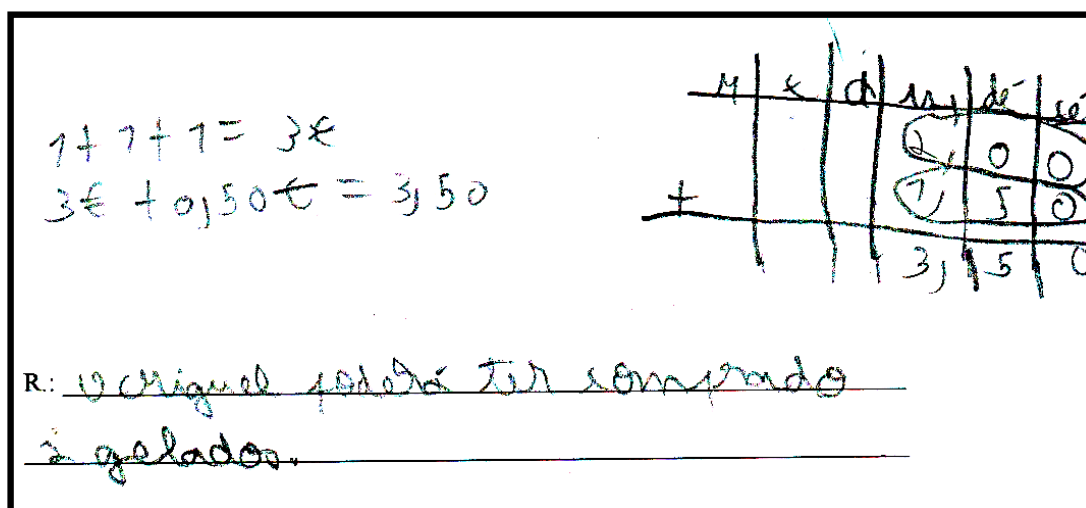 1+1+1= 3€
3€ +0,50€ = 3,50
M c d u, dé cé
2, 0 0
+ 1, 5 0
3, 5 0
R.: O Miguel poderá ter comprado
2 gelados.